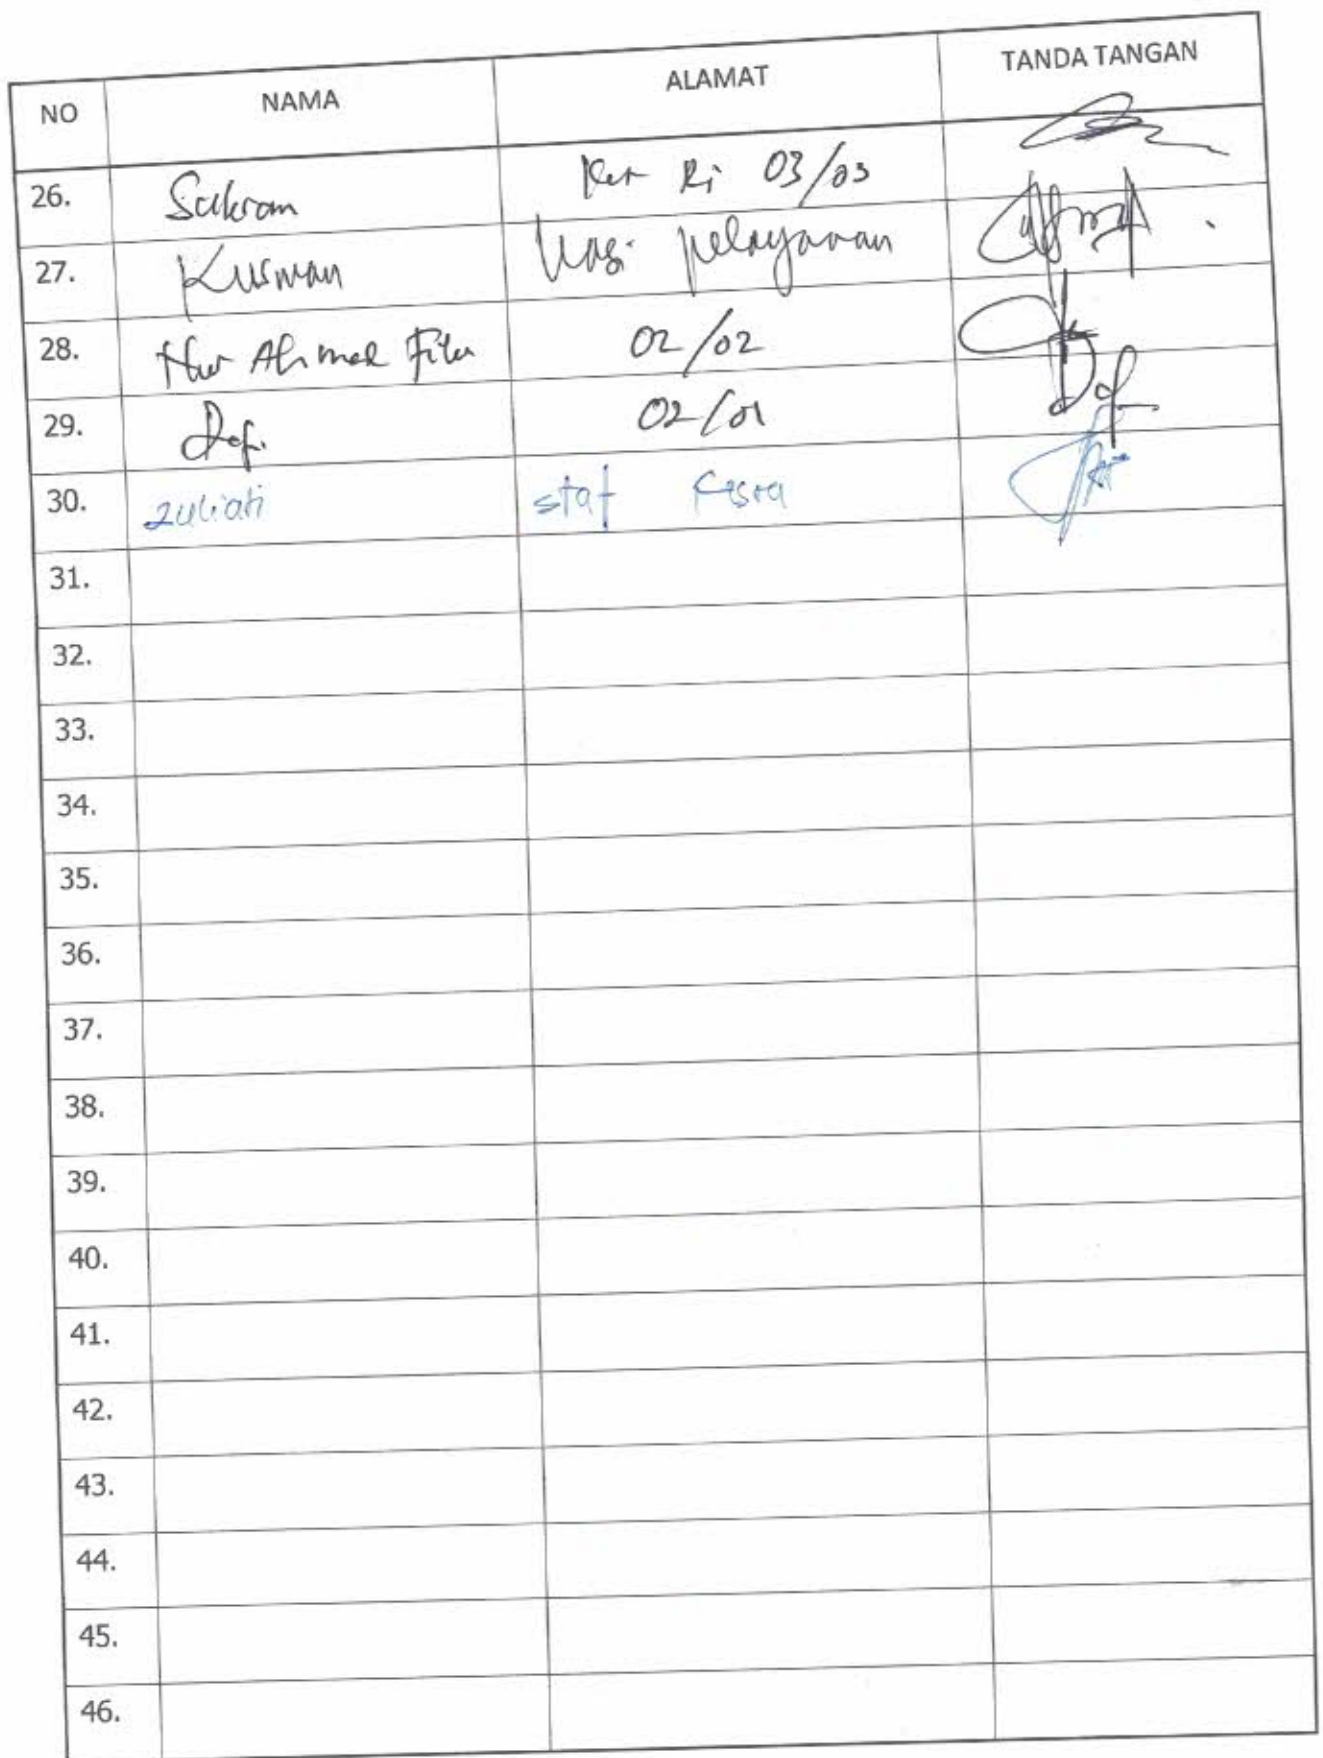 NO NAMA ALAMAT TANDA TANGAN
26. Sakram Ket Rt 03/03
27. Kusman Kasi pelayanan
28. Nur Ahmad 02/02
29. Defi. 02/01
30. zuliati staf kesra
31.
32.
33.
34.
35.
36.
37.
38.
39.
40.
41.
42.
43.
44.
45.
46.